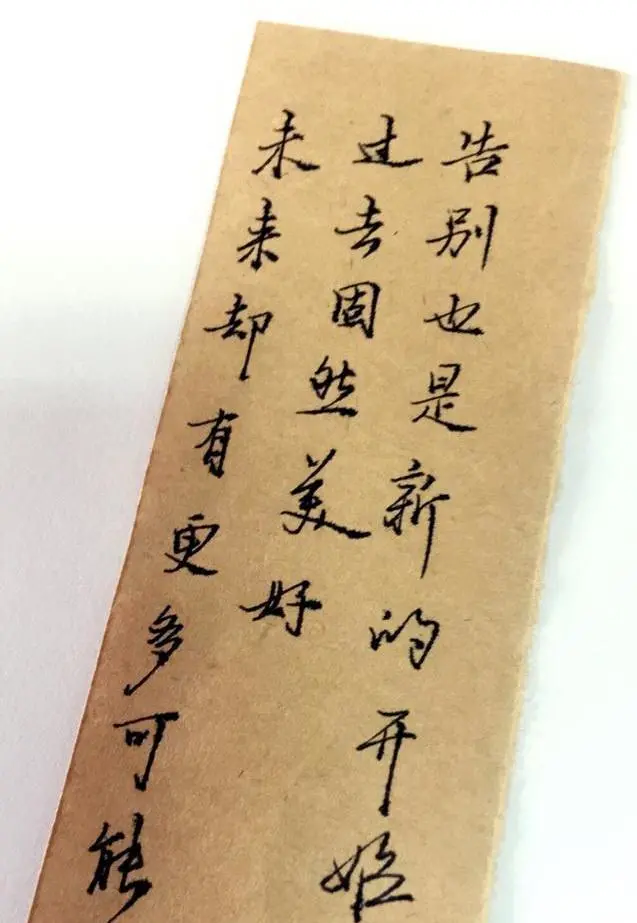 告别也是新的开始
过去固然美好
未来却有更多可能